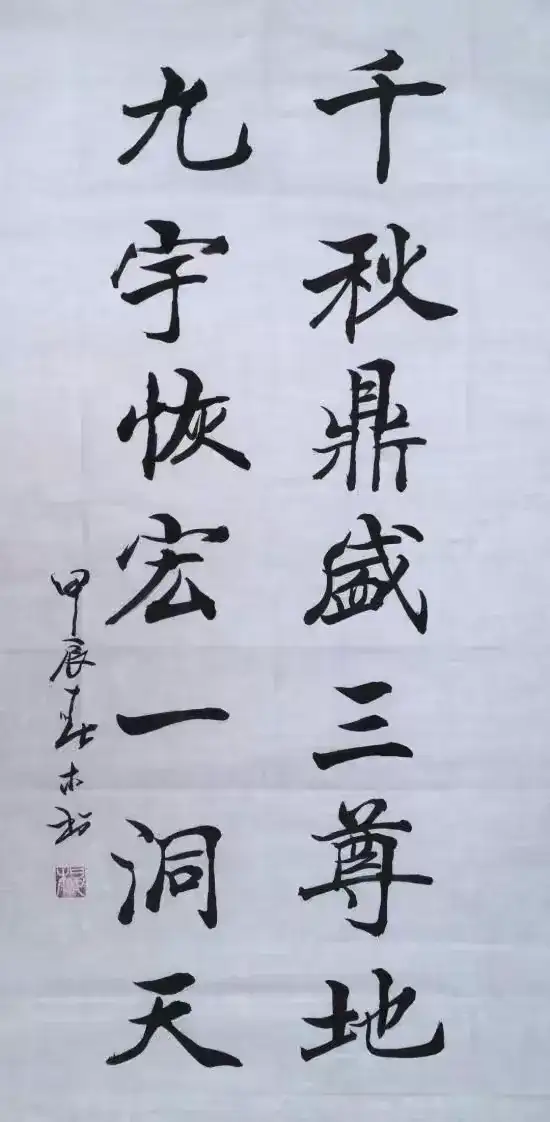 千秋鼎盛三尊地
九宇恢宏一洞天
甲辰春木